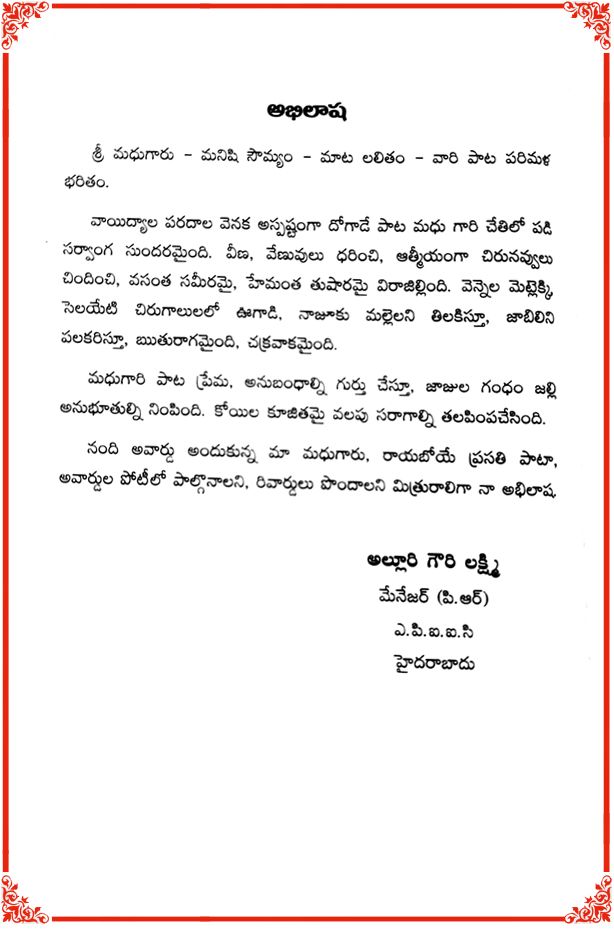 అభిలాష
శ్రీ మధుగారు - మనిషి సౌమ్యం - మాట లలితం - వారి పాట పరిమళ
భరితం.
వాయిద్యాల పరదాల వెనక అస్పష్టంగా దోగాడే పాట మధు గారి చేతిలో పడి
సర్వాంగ సుందరమైంది. వీణ, వేణువులు ధరించి, ఆత్మీయంగా చిరునవ్వులు
చిందించి, వసంత సమీరమై, హేమంత తుషారమై విరాజిల్లింది. వెన్నెల మెట్లెక్కి
సెలయేటి చిరుగాలులలో ఊగాడి, నాజూకు మల్లెలని తిలకిస్తూ, జాబిలిని
పలకరిస్తూ, ఋతురాగమైంది, చక్రవాకమైంది.
మధుగారి పాట ప్రేమ, అనుబంధాల్ని గుర్తు చేస్తూ, జాజుల గంధం జల్లి
అనుభూతుల్ని నింపింది. కోయిల కూజితమై వలపు సరాగాల్ని తలపింపచేసింది.
నంది అవార్డు అందుకున్న మా మధుగారు, రాయబోయే ప్రసతి పాటా,
అవార్డుల పోటీలో పాల్గొనాలని, రివార్డులు పొందాలని మిత్రురాలిగా నా అభిలాష.
అల్లూరి గౌరి లక్ష్మి
మేనేజర్ (పి.ఆర్)
ఎ.పి.ఐ.ఐ.సి
హైదరాబాదు